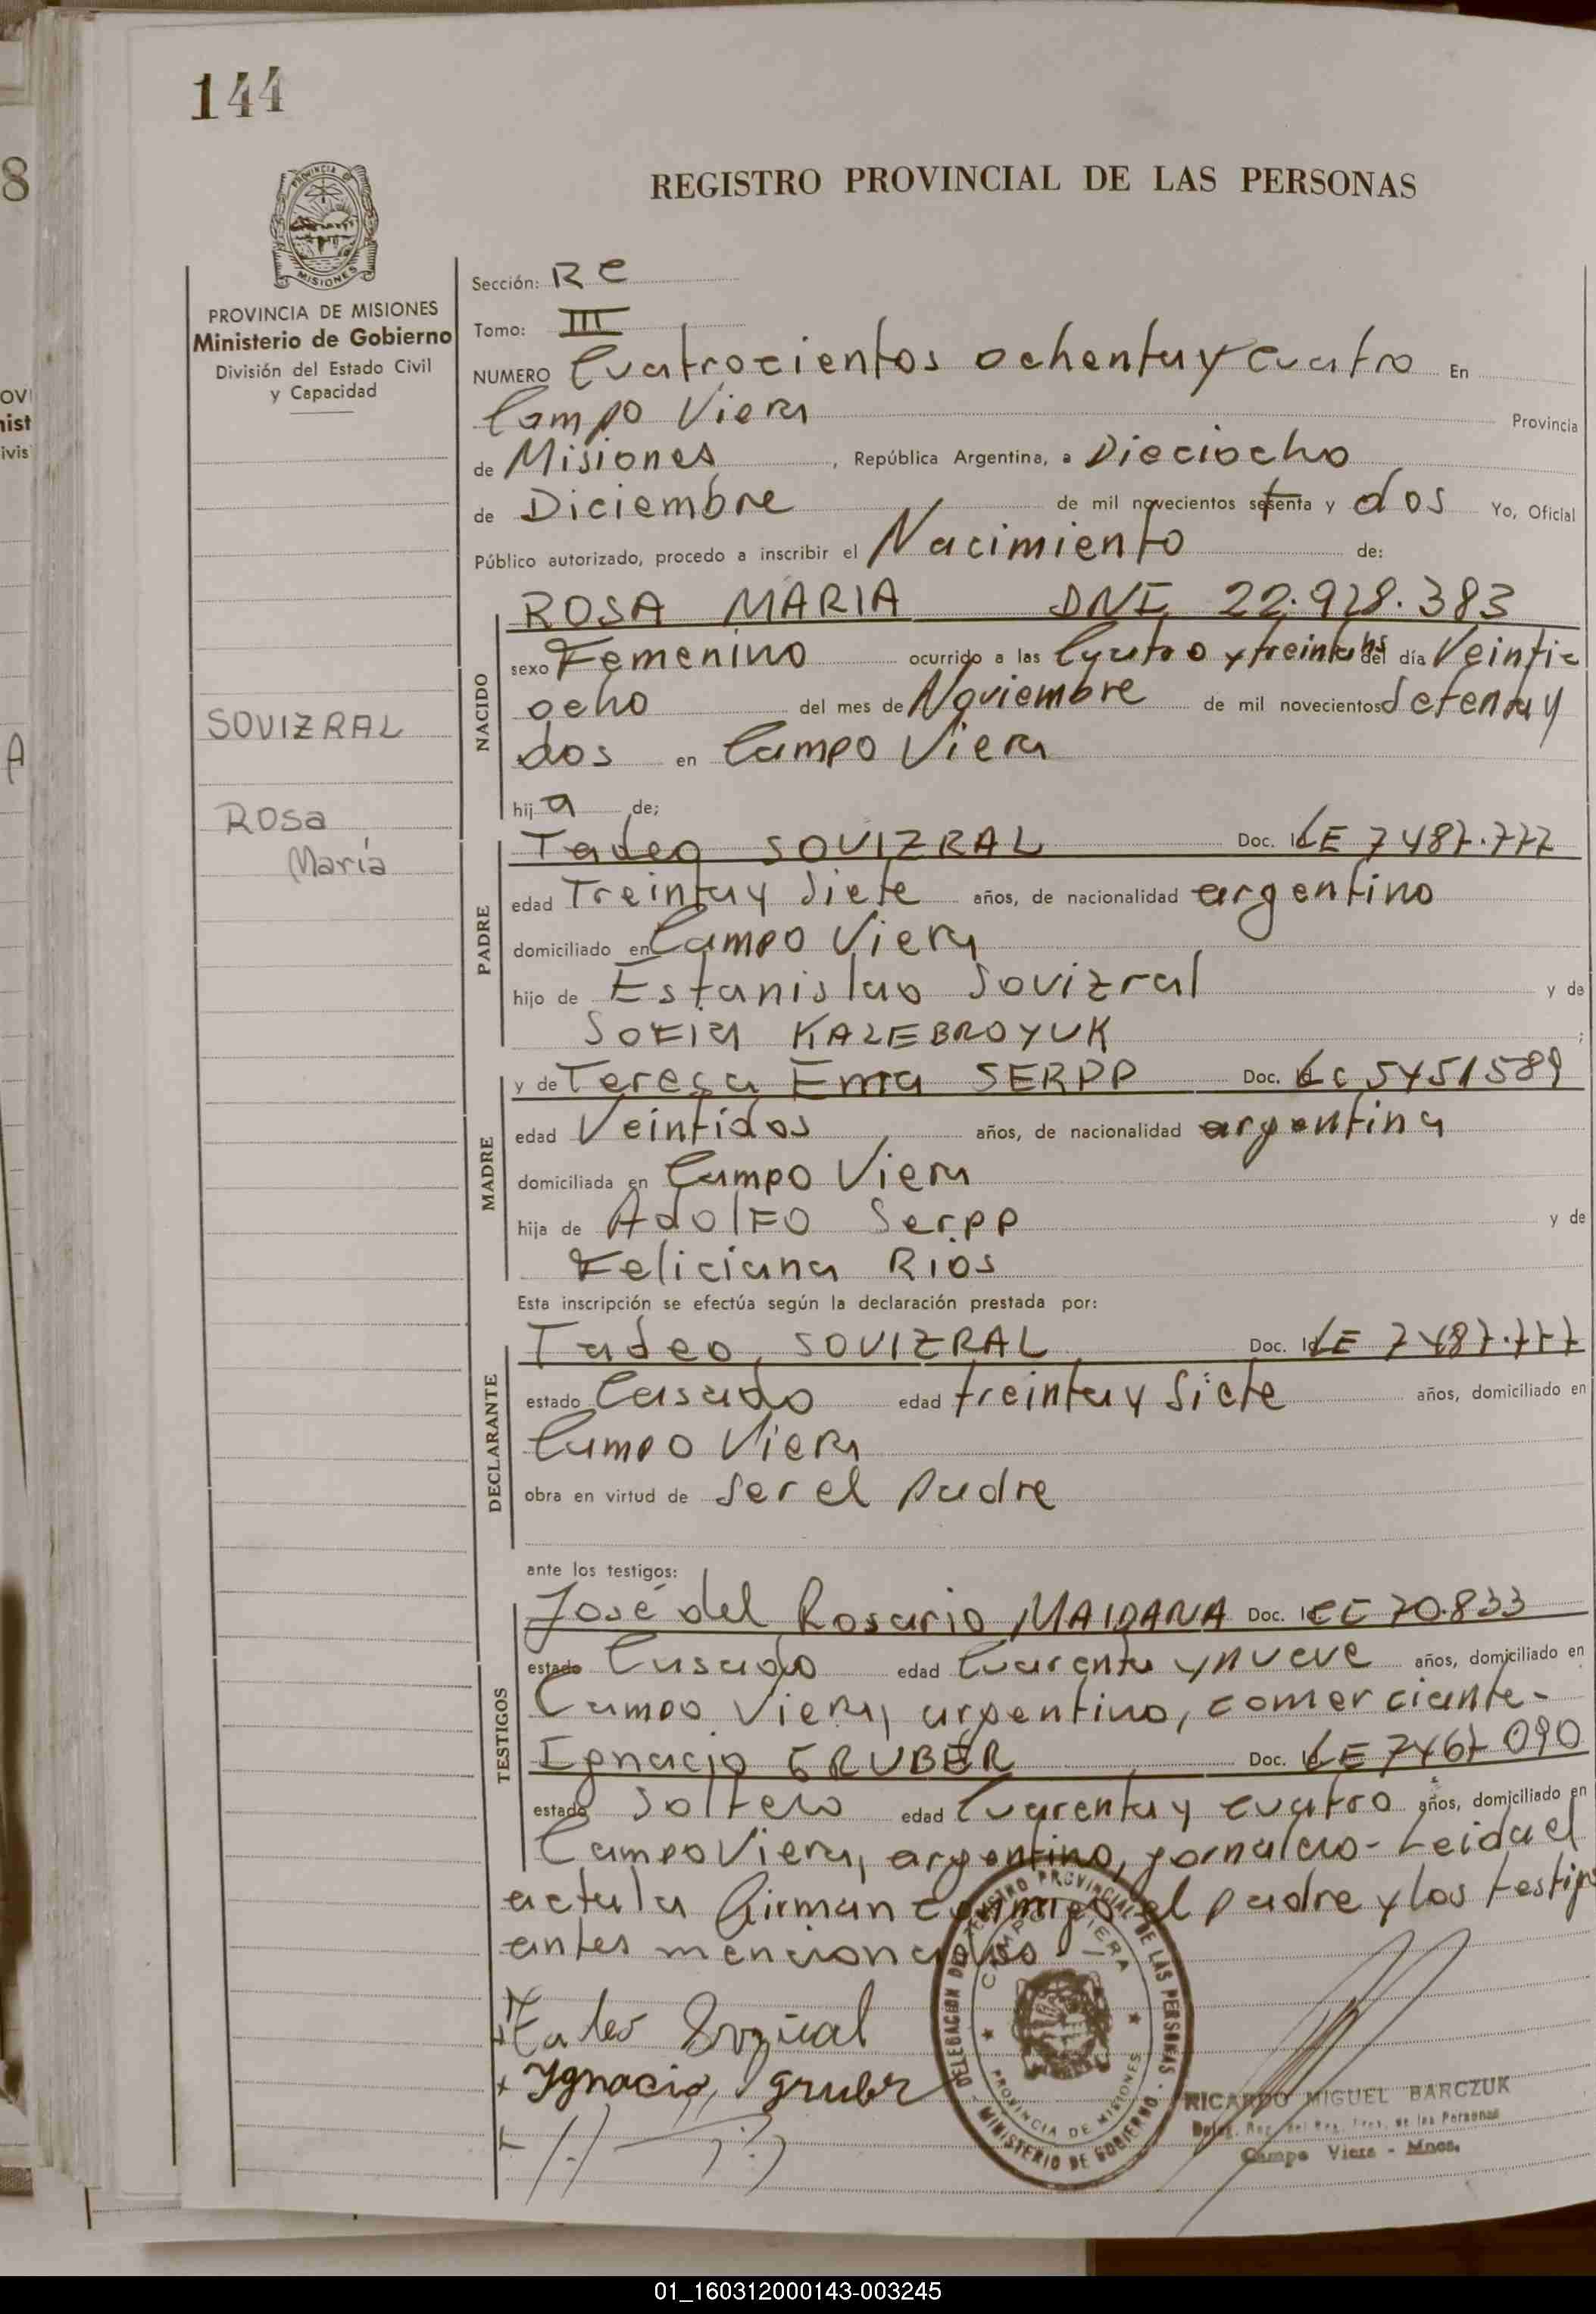 144
8
REGISTRO PROVINCIAL DE LAS PERSONAS
PROVINCIA DE MISIONES
Ministerio de Gobierno
División del Estado Civil
y Capacidad
SOVIZRAL
Rosa
María
Sección: RC
Tomo: III
NUMERO Cuatrocientos ochenta y cuatro En
Campo Viera Provincia
de Misiones, República Argentina, a Dieciocho
de Diciembre de mil novecientos setenta y dos Yo, Oficial
Público autorizado, procedo a inscribir el Nacimiento de:
NACIDO
ROSA MARIA DNI 22.928.383
sexo Femenino ocurrido a las Cuatro y treinta hs del día Veinti-
ocho del mes de Noviembre de mil novecientos setenta y
dos en Campo Viera
hija de;
PADRE
Tadeo SOVIZRAL Doc. Id LE 7487.777
edad Treinta y siete años, de nacionalidad argentino
domiciliado en Campo Viera
hijo de Estanislao Sovizral y de
SOFIA KAZEBROYUK;
MADRE
y de Teresa Ema SERPP Doc. LC 5451589
edad Veintidos años, de nacionalidad argentina
domiciliada en Campo Viera
hija de Adolfo Serpp y de
Feliciana Rios
Esta inscripción se efectúa según la declaración prestada por:
DECLARANTE
Tadeo SOVIZRAL Doc. Id LE 7487.777
estado Casado edad treinta y siete años, domiciliado en
Campo Viera
obra en virtud de ser el padre
ante los testigos:
TESTIGOS
José del Rosario MAIDANA Doc. 70.833
estado Casado edad Cuarenta y nueve años, domiciliado en
Campo Viera, argentino, comerciante-
Ignacio GRUBER Doc. LE 7467090
estado Soltero edad Cuarenta y cuatro años, domiciliado en
Campo Viera, argentino, jornalero- Leida el
acta la firman conmigo el padre y los testigos
antes mencionados
Tadeo Sovizral
Ygnacio gruber
DELEGACION DEL REGISTRO PROVINCIAL DE LAS PERSONAS - MINISTERIO DE GOBIERNO -
CAMPO VIERA
PROVINCIA DE MISIONES
RICARDO MIGUEL BARCZUK
Deleg. Reg. del Reg. Prov. de las Personas
Campo Viera - Mnes.
01_160312000143-003245